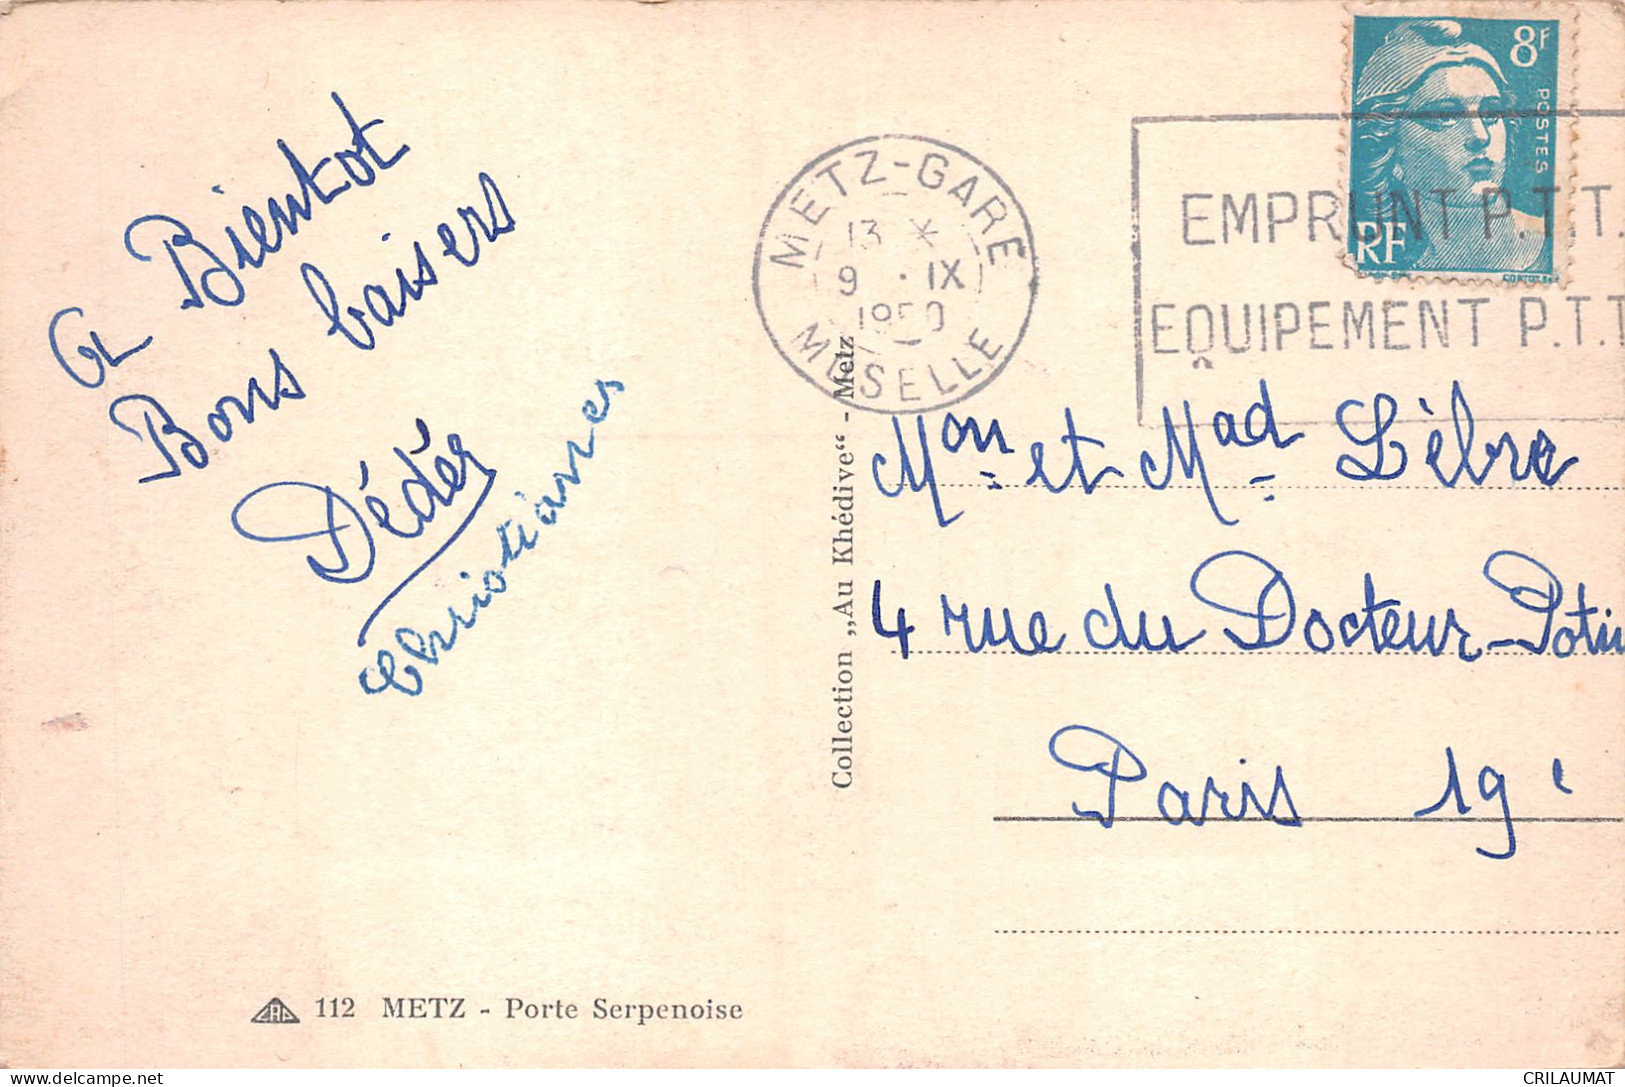 A Bientot
Bons baisers
Dédés
Christianes
METZ-GARE
13 *
9 . IX
1950
MOSELLE
8F
POSTES
RF
EMPRUNT P.T.T.
EQUIPEMENT P.T.T
Collection „Au Khédive“ - Metz
Mon et Mad Lèbre
4 rue du Docteur-Potin
Paris 19e
112 METZ - Porte Serpenoise
CRILAUMAT